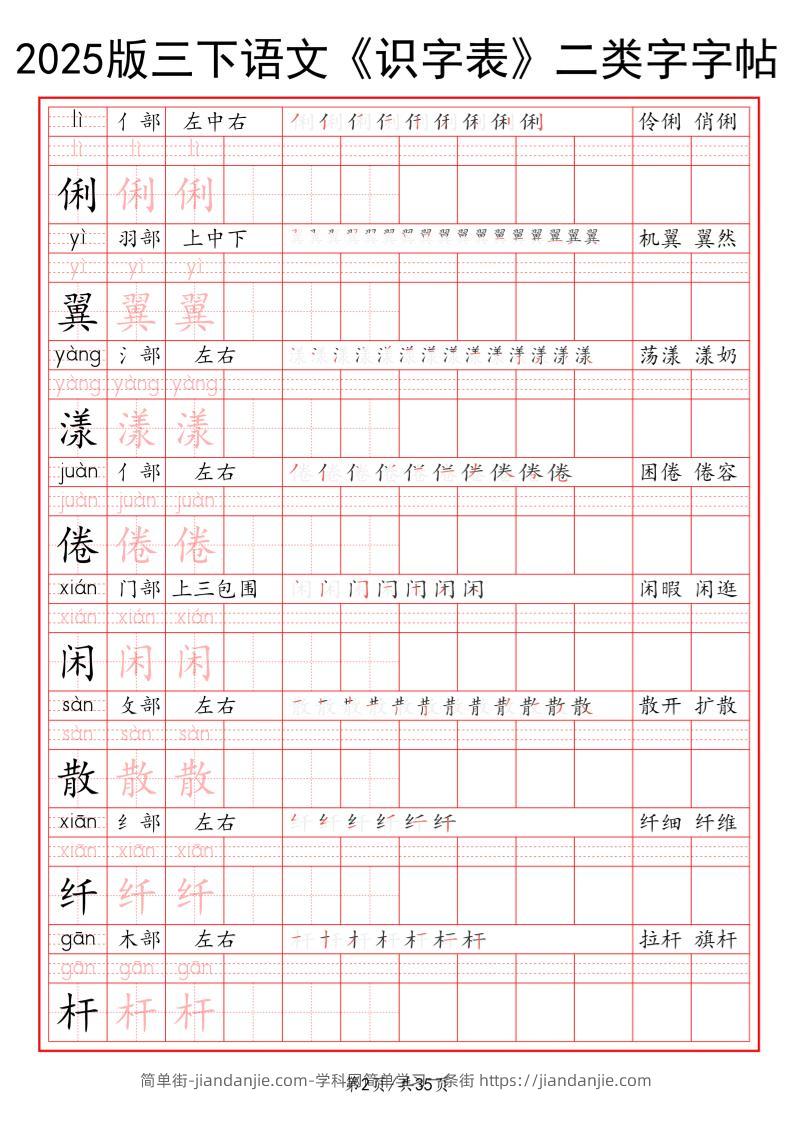 2025版三下语文《识字表》二类字字帖
lì 亻部 左中右 伶俐 俏俐
lì lì lì
俐 俐 俐
yì 羽部 上中下 机翼 翼然
yì yì yì
翼 翼 翼
yàng 氵部 左右 荡漾 漾奶
yàng yàng yàng
漾 漾 漾
juàn 亻部 左右 困倦 倦容
juàn juàn juàn
倦 倦 倦
xián 门部 上三包围 闲暇 闲逛
xián xián xián
闲 闲 闲
sàn 攵部 左右 散开 扩散
sàn sàn sàn
散 散 散
xiān 纟部 左右 纤细 纤维
xiān xiān xiān
纤 纤 纤
gān 木部 左右 拉杆 旗杆
gān gān gān
杆 杆 杆
简单街-jiandanjie.com-学科网简单学习一条街 https://jiandanjie.com
第2页/共35页